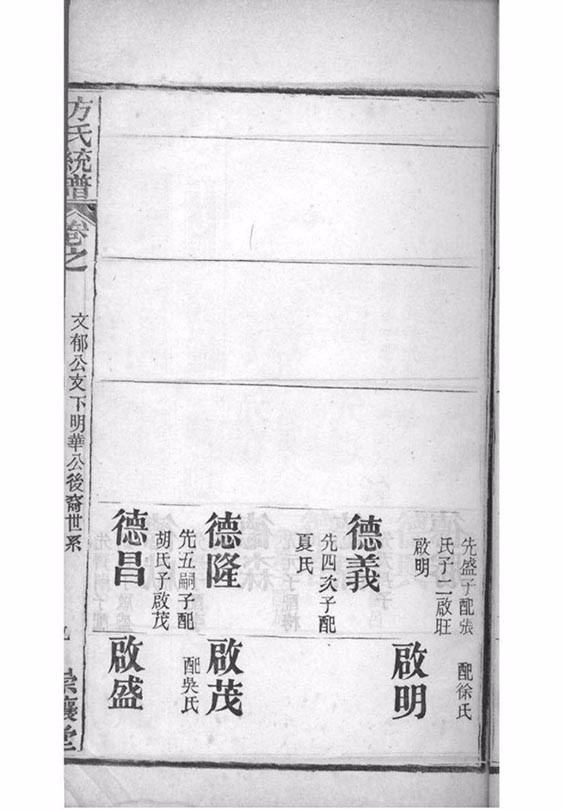 先盛子配張
氏子二啟旺
啟明
德義
先四次子配
夏氏
德隆
先五嗣子配
胡氏子啟茂
德昌
配徐氏
啟明
啟茂
配吳氏
啟盛
方氏統譜
卷之
文郁公支下明華公後裔世系